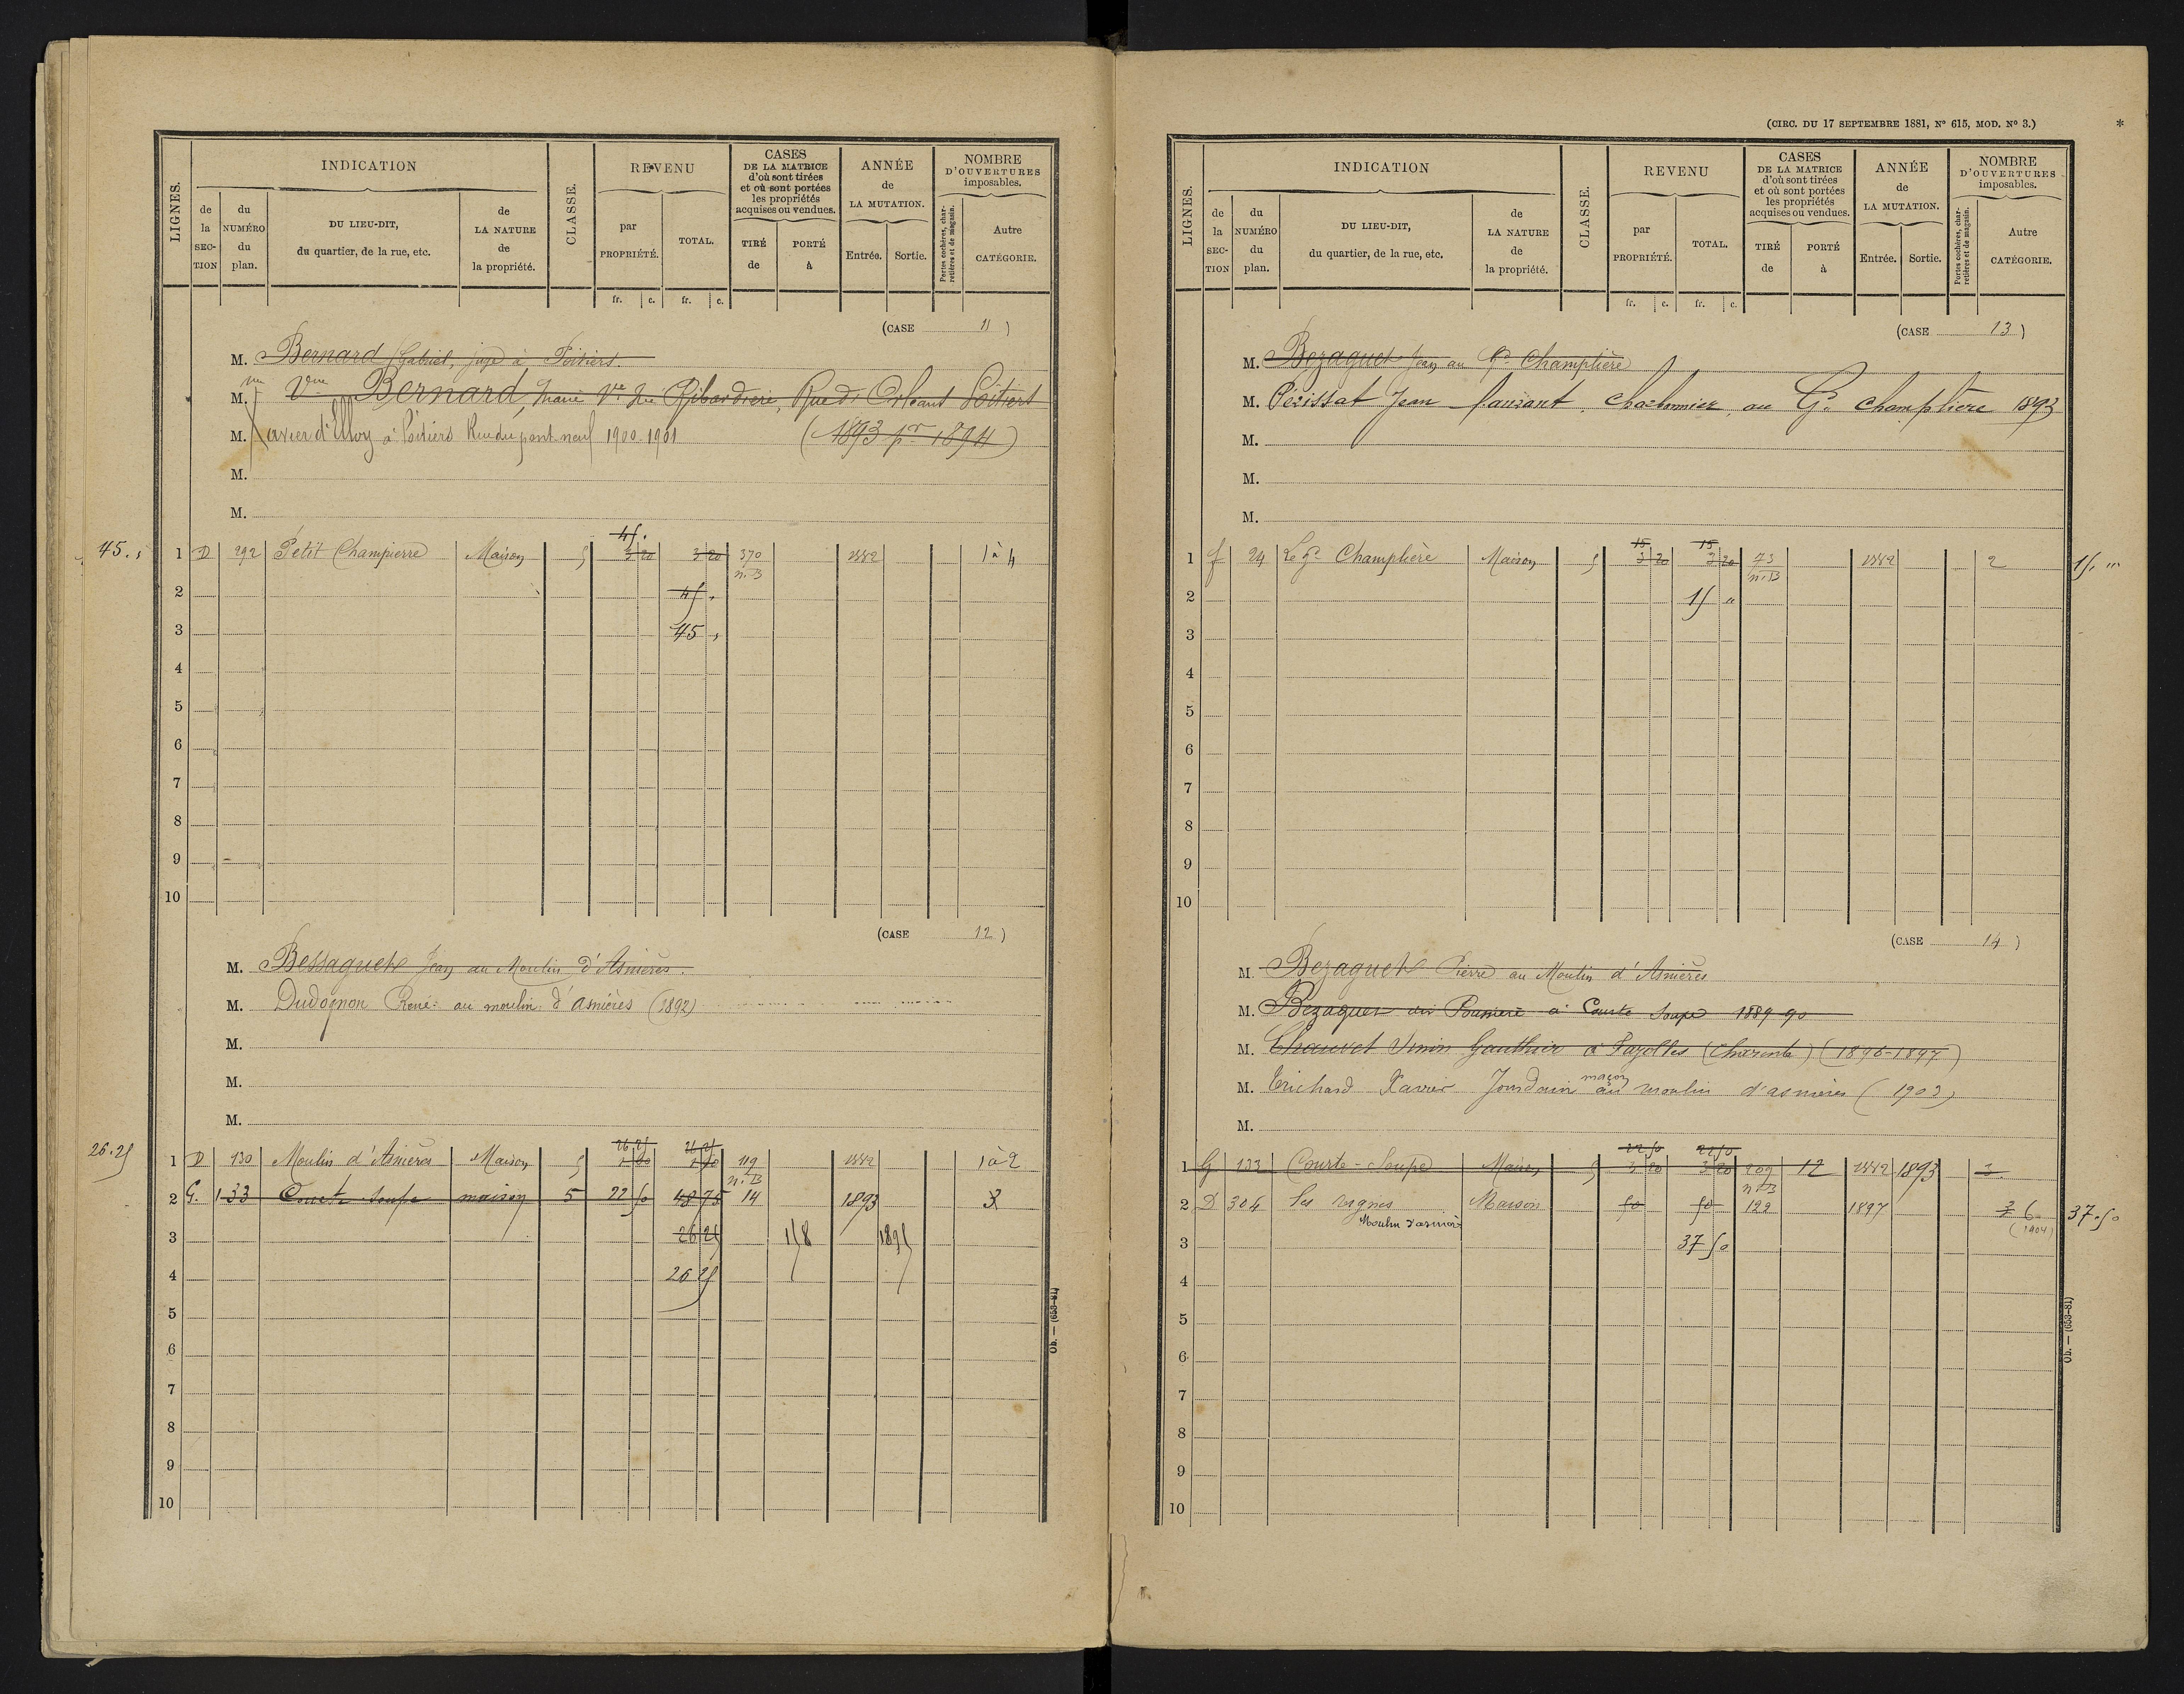 LIGNES.
INDICATION
de la SECTION
du NUMÉRO du plan.
DU LIEU-DIT, du quartier, de la rue, etc.
de LA NATURE de la propriété.
CLASSE.
REVENU
par PROPRIÉTÉ.
TOTAL.
fr. c. fr. c.
CASES DE LA MATRICE d'où sont tirées et où sont portées les propriétés acquises ou vendues.
TIRÉ de
PORTÉ à
ANNÉE de LA MUTATION.
Entrée.
Sortie.
NOMBRE D'OUVERTURES imposables.
Portes cochères, charretières et de magasin.
Autre CATÉGORIE.
(CASE 11)
M. Bernard Gabriel, juge à Poitiers.
M. Vve Bernard, née Ribardière, Rue d'Orléans Poitiers
M. Xavier d' à Poitiers Rue du pont-neuf 1900-1901 (1893 pr 1894)
M.
M.
45. 1 D 292 Petit Champierre Maison 5 45. 3 20 3 20 370 n.B 1882 1 à 4
2 45
3 45
4
5
6
7
8
9
10
(CASE 12)
M. Bessaguet Jean au Moulin d'Asnières.
M. Dudognon René au moulin d'asnières (1892)
M.
M.
M.
26.25 1 D 130 Moulin d'Asnières Maison 5 26 25 26 25 119 n.B 1882 1 à 2
2 G. 133 Courte Soupe maison 5 22 50 48 75 14 1893 3
3 26 25 158 1895
4 26 25
5
6
7
8
9
10
Ob. — (653-81)
(CIRC. DU 17 SEPTEMBRE 1881, Nº 615, MOD. Nº 3.)
*
LIGNES.
INDICATION
de la SECTION
du NUMÉRO du plan.
DU LIEU-DIT, du quartier, de la rue, etc.
de LA NATURE de la propriété.
CLASSE.
REVENU
par PROPRIÉTÉ.
TOTAL.
fr. c. fr. c.
CASES DE LA MATRICE d'où sont tirées et où sont portées les propriétés acquises ou vendues.
TIRÉ de
PORTÉ à
ANNÉE de LA MUTATION.
Entrée.
Sortie.
NOMBRE D'OUVERTURES imposables.
Portes cochères, charretières et de magasin.
Autre CATÉGORIE.
(CASE 13)
M. Bezaguet Jean au Gd Champlière
M. Périssat Jean au Gd champlière 1893
M.
M.
M.
1 f 24 Le gd Champlière Maison 5 15 3 20 15 3 20 73 n.B 1882 2 15. "
2 15 "
3
4
5
6
7
8
9
10
(CASE 14)
M. Bezaguet Pierre au Moulin d'Asnières
M. Bezaguet à Courte Soupe 1889 90
M. Chauvet Gauthier à (Charente) (1896-1897)
M. Trichard Xavier Jourdain maçon au moulin d'asnières (1903)
M.
1 G 133 Courte-Soupe Maison 5 22 50 3 20 22 50 3 20 209 n.B 12 1882 1893 3
2 D 304 Moulin d'asnières Maison 50 50 122 1897 6 (1904) 37.50
3 37 50
4
5
6
7
8
9
10
Ob. — (653-81)